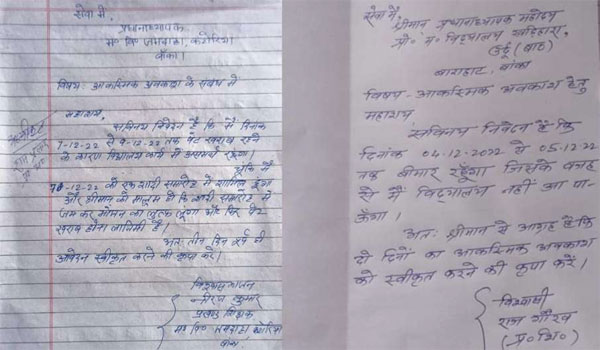 सेवा में,
प्रधानाध्यापक
म० वि० जमदाहा, कटोरिया
बाँका।
विषय:- आकस्मिक अवकाश के संबंध में
महाशय,
सविनय निवेदन है कि मैं दिनांक
7-12-22 से 9-12-22 तक पेट खराब रहने
के कारण विद्यालय कार्य में असमर्थ रहूँगा।
चूंकि मैं
-12-22 को एक शादी समारोह में शामिल हूंगा
और श्रीमान को मालूम हो कि शादी समारोह में
जम कर भोजन का लुत्फ लूंगा और फिर पेट
खराब होना लाजिमी है।
अतः तीन दिन पूर्व ही
आवेदन स्वीकृत करने की कृपा करें।
विश्वासभाजन
नीरज कुमार
प्रखंड शिक्षक
म० वि० जमदाहा कटोरिया
बांका
सेवा में,
श्रीमान प्रधानाध्यापक महोदय
म० विद्यालय
बाराहाट, बांका
विषय - आकस्मिक अवकाश हेतु
महाशय
सविनय निवेदन है कि
दिनांक 04.12.2022 से 05.12.22
तक बीमार रहूँगा जिसके वजह
से मैं विद्यालय नहीं आ पा-
ऊंगा।
अतः श्रीमान से आग्रह है कि
दो दिनों का आकस्मिक अवकाश
को स्वीकृत करने की कृपा करें।
राज गौरव
(प्र० शि०)